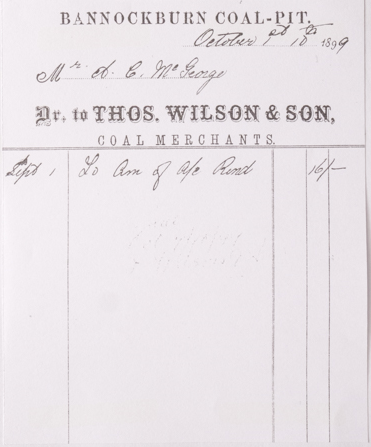 BANNOCKBURN COAL-PIT.
October 1st 1899
Mr A. C. McGeorge
Dr. to THOS. WILSON & SON,
COAL MERCHANTS.
Sept 1 To Am of A/c Rend 16/-